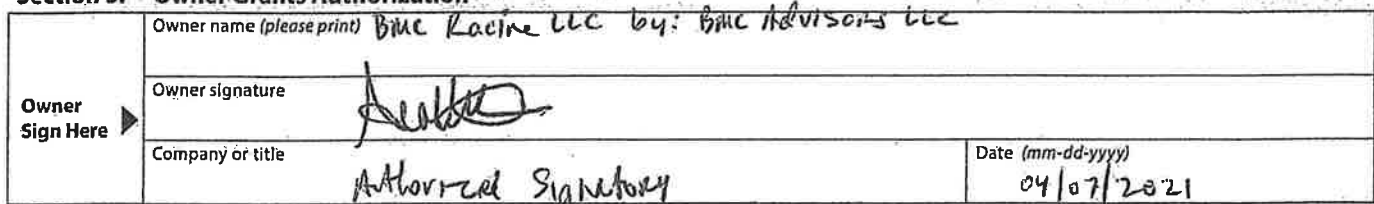 Section 5: Owner Grants Authorization
Owner name (please print) BMC Racine LLC by: BMC Advisors LLC
Owner signature
Owner
Sign Here
Company or title
Authorized Signatory
Date (mm-dd-yyyy)
04/07/2021